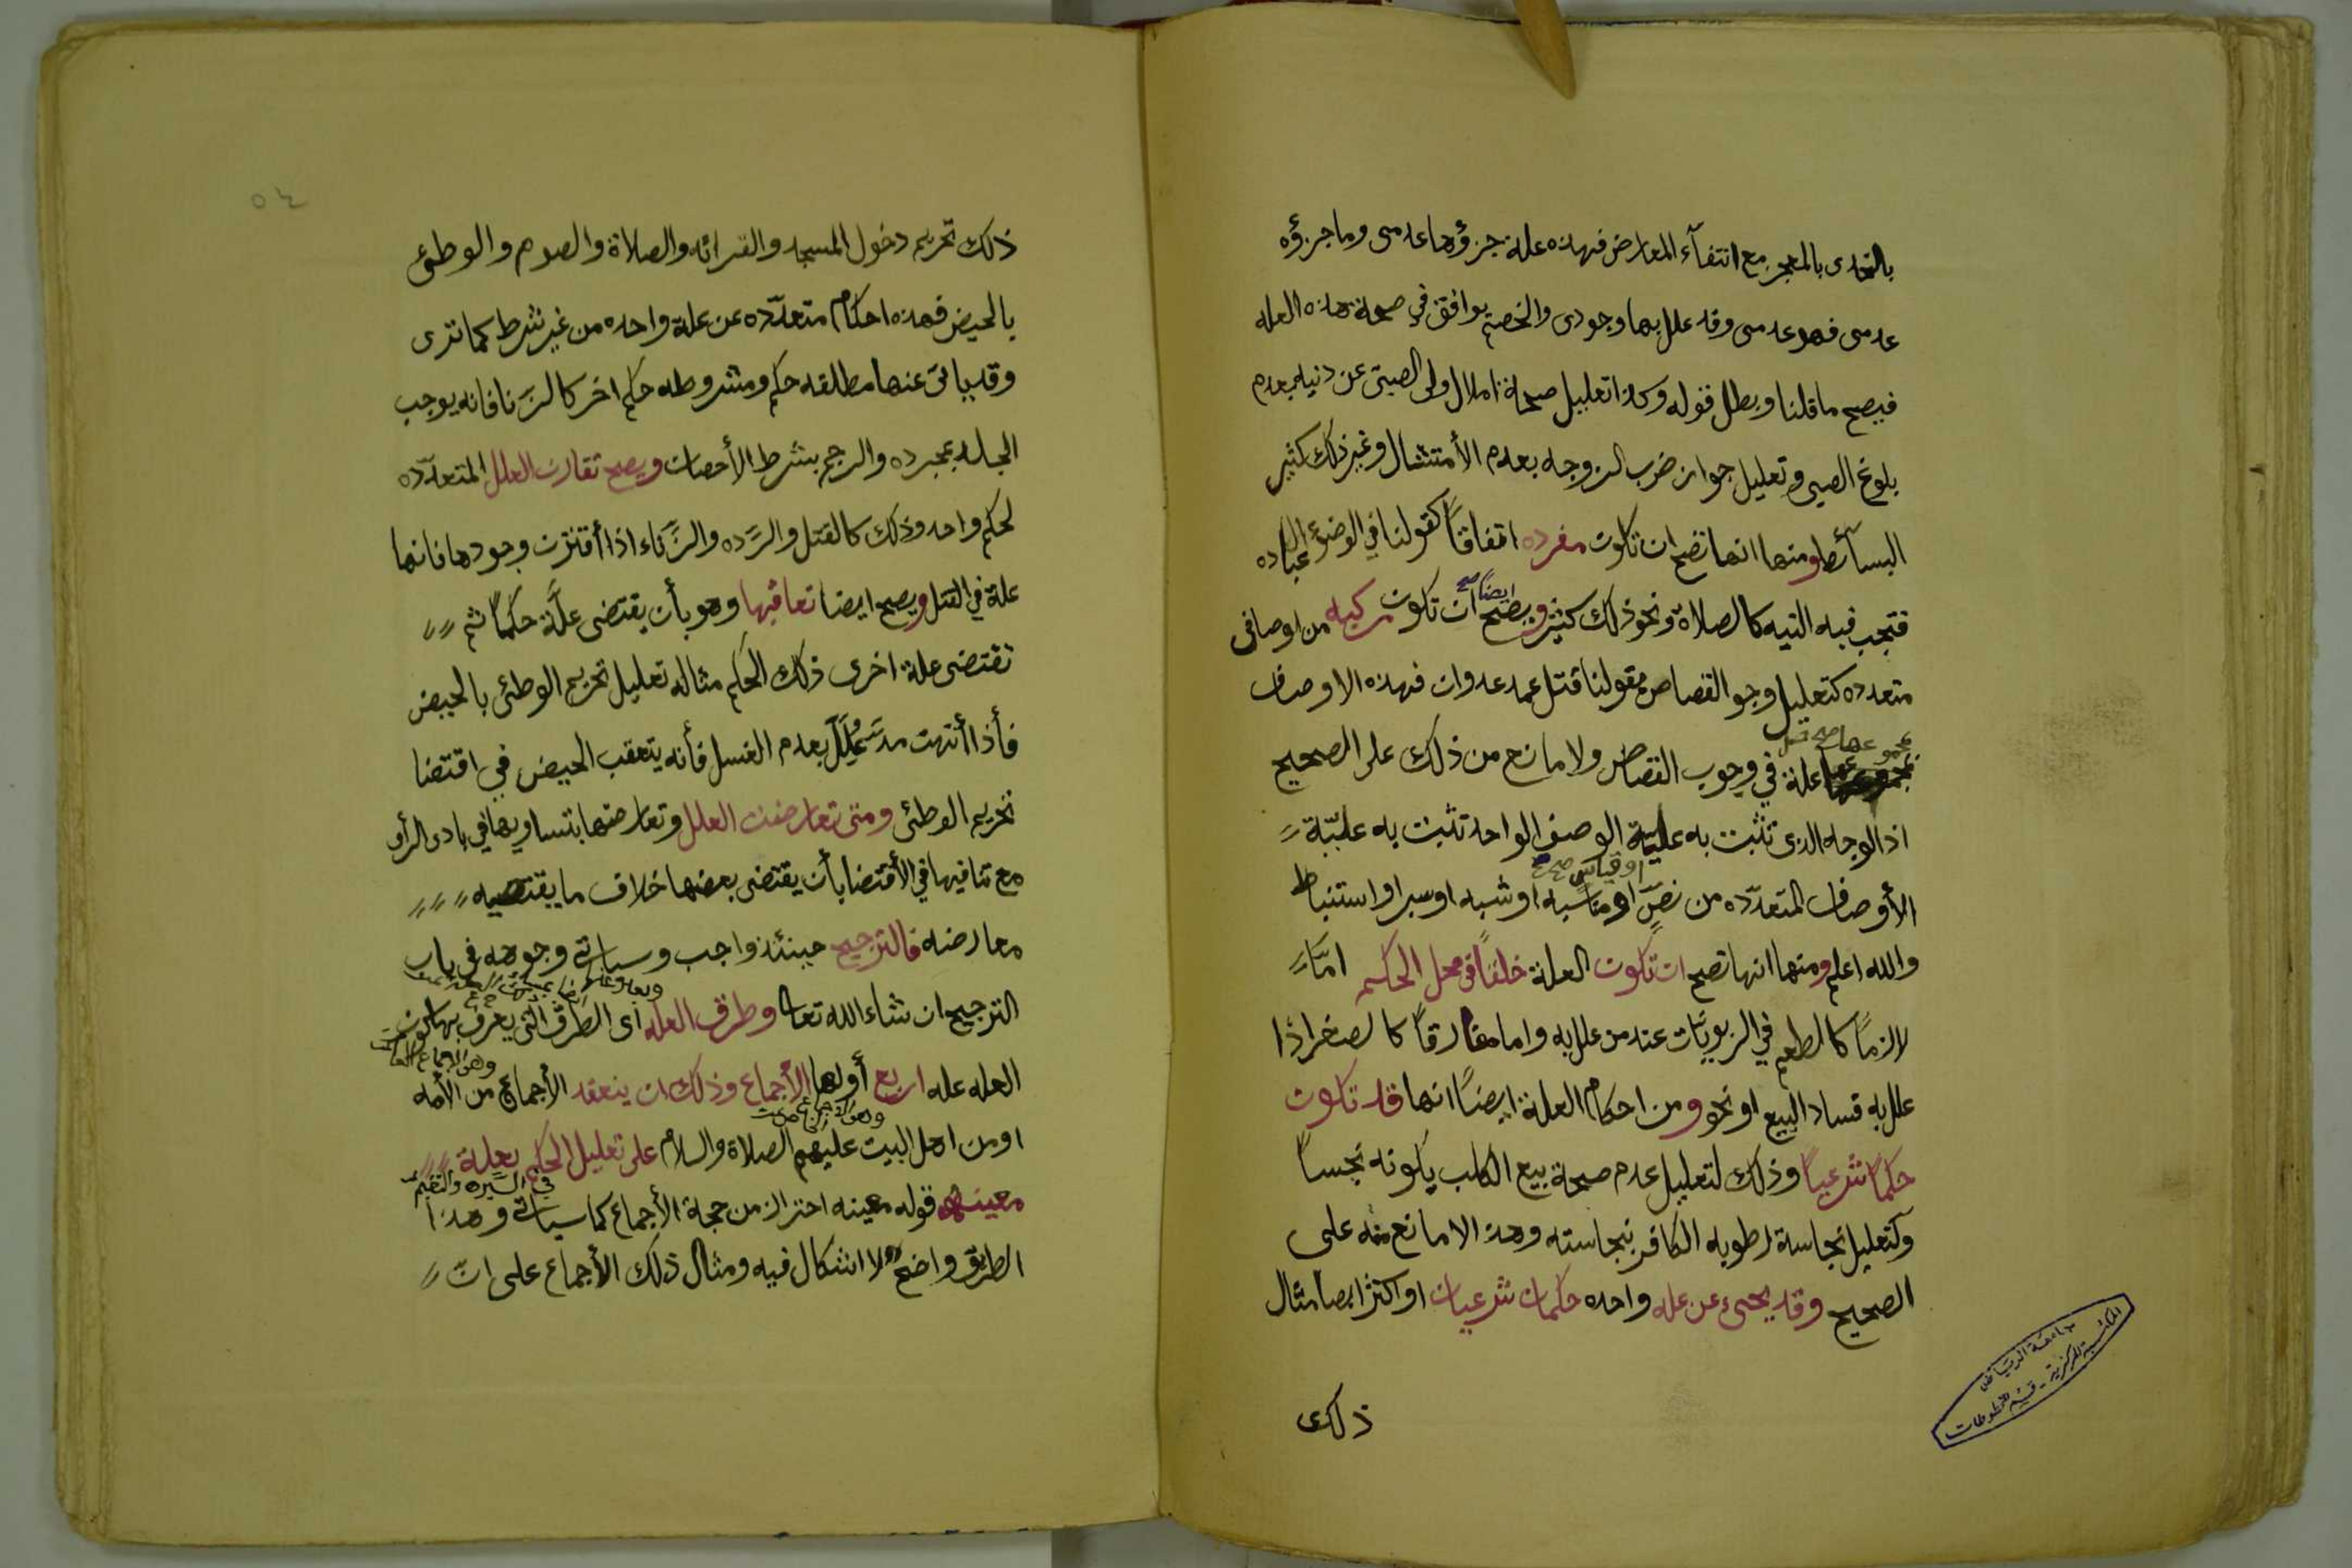 بالتحدى بالمعجز مع انتفآء المعارض فهذه علة جزؤها عدمى وما جزؤه
عدمى فهو عدمى وقد علل بها وجودى والخصم يوافق في صحة هذه العله
فيصح ما قلنا وبطل قوله وكذا تعليل صحة ولى الصبى عن دنيه بعدم
بلوغ الصبى وتعليل جواز ضرب الزوجه بعدم الأمتثال وغير ذلك كثير
البسآئط ومنها انها تصح ان تكون مفرده اتفاقاً كقولنا في الوضوء عباده
فتجب فيه النيه كالصلاة ونحو ذلك كثير ويصح ايضاً صح ان تكون مركبه من اوصاف
متعدده كتعليل وجو القصاص بقولنا قتل عمد عدوان فهذه الاوصاف
بمجموعها صح
علة في وجوب القصاص ولا مانع من ذلك على الصحيح
اذ الوجه الذى تثبت به علية الوصف الواحد تثبت به عليّة
او قياس صح
الأوصاف المتعدّده من نصّ او مناسبه او شبه او سبر او استنباط
والله اعلم ومنها انها تصح ان تكون العلة خلفاً في محل الحكم امّا
لازماً كالطعم في الربويّات عند من علل به واما مفارقاً كالصغر اذا
علل به فساد البيع او نحو ومن احكام العلة ايضاً انها قد تكون
حكماً شرعياً وذلك لتعليل عدم صحة بيع الكلب بكونه نجساً
وكتعليل نجاسة رطوبه الكافر بنجاسته وهذا لا مانع منه على
الصحيح وقد يجىء عن عله واحده حكمان شرعيان او اكثر ايضا مثال
ذلك
جامعة الرياض
المكتبة المركزية - قسم المخطوطات
٥٤
ذلك تحريم دخول المسجد والقرائه والصلاة والصوم والوطئ
بالحيض فهذه احكام متعدّده عن علة واحده من غير شرط كما ترى
وقد ياتى عنها مطلقه حكم ومشروطه حكم اخر كالزنا فانه يوجب
الجلد بمجرده والرجم بشرط الأحصان ويصح تقارن العلل المتعدّده
لحكم واحد وذلك كالقتل والرّده والزّناء اذا أقترن وجودها فانها
علة في القتل ويصح ايضا تعاقبها وهو بأن يقتضى علّة حكماً ثم
تقتضى علة اخرى ذلك الحكم مثاله تعليل تحريم الوطئ بالحيض
فأذا أنتهت مدته عُلِّل بعدم الغسل فأنه يتعقب الحيض في اقتضا
تحريم الوطئ ومتى تعارضت العلل وتعارضها بتساويها في بادى الرأى
مع تنافيها في الأقتضا بأن يقتضى بعضها خلاف ما يقتضيه
معارضه فالترجيح حينئذ واجب وسياتى وجوهه في باب
الترجيح ان شاء الله تعالى وطرق العله اى الطرق التي يعرف بها كون
العله عله اربع أولها الأجماع وذلك ان ينعقد الأجماع من الأمه
وهو الاجماع العام
او من اهل البيت عليهم الصلاة والسلام على تعليل الحكم بعلة
وهو الاجماع الخاص
معينه قوله معينه احتراز من حجة الأجماع كما سياتى وهذا
في السبر والتقسيم
الطريق واضح لا اشكال فيه ومثال ذلك الأجماع على انّ